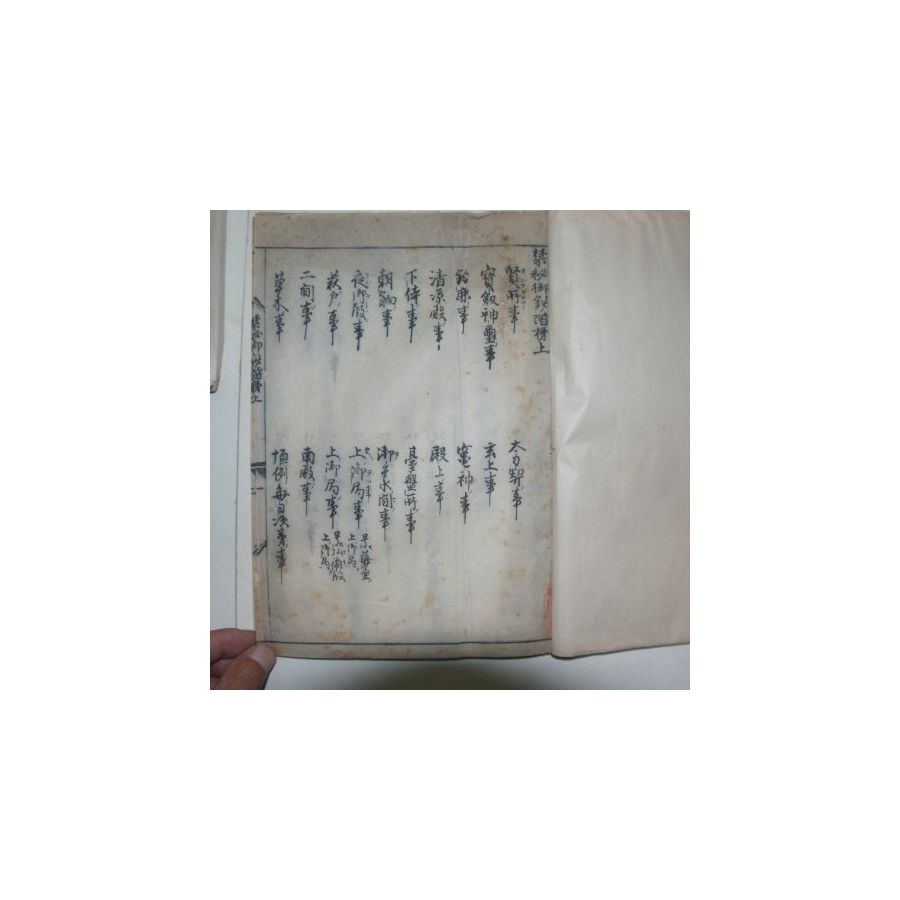 禁秘御鈔階梯上
賢所事
太刀契事
寳劔神璽事
玄上事
鈴鹿事
竃神事
清凉殿事
殿上事
下侍事
臺盤所事
朝餉事
御手水間事
夜御殿事
上御局事
上御局
萩戸事
上御局事
上御局
二間事
南殿事
草木事
恒例毎日次第事